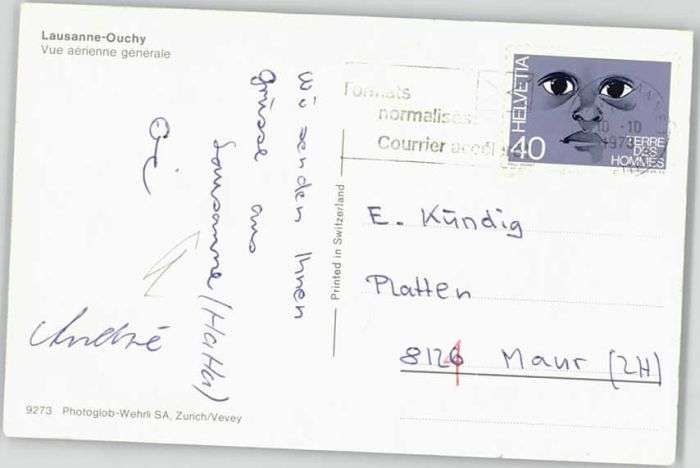 Lausanne-Ouchy
Vue aérienne générale
Wi senden Ihnen
Grüsse aus
Lausanne (HaHa)
André
9273 Photoglob-Wehrli SA, Zurich/Vevey
Printed in Switzerland
Formats
normalisés
Courrier accél
HELVETIA
40
TERRE
DES
HOMMES
10.-10
1973
E. Kündig
Platten
8126 Maur (ZH)